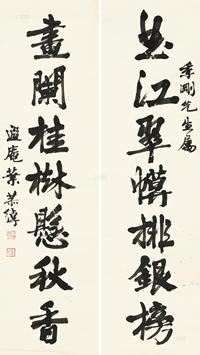 曲江翠幙排銀榜
季剛先生屬
畫闌桂樹懸秋香
遐庵葉恭綽